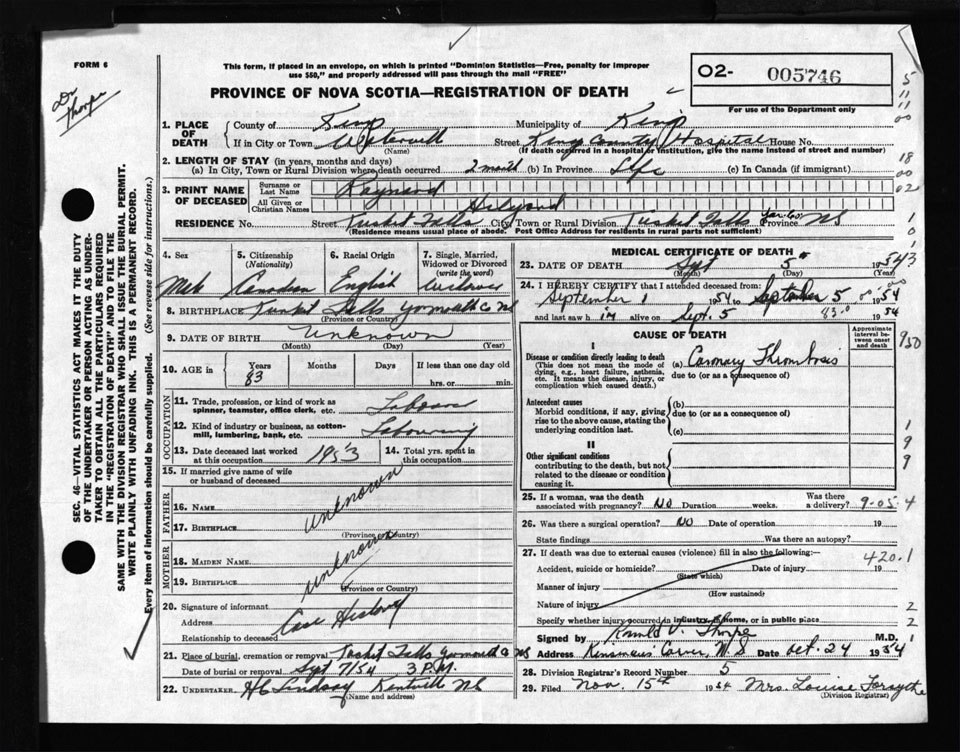 FORM 6
Dr Thorpe
This form, if placed in an envelope, on which is printed "Dominion Statistics—Free, penalty for improper
use $50," and properly addressed will pass through the mail "FREE"
PROVINCE OF NOVA SCOTIA—REGISTRATION OF DEATH
O2- 005746
For use of the Department only
SEC. 46—VITAL STATISTICS ACT MAKES IT THE DUTY
OF THE UNDERTAKER OR PERSON ACTING AS UNDER-
TAKER TO OBTAIN ALL THE PARTICULARS REQUIRED
IN THE "REGISTRATION OF DEATH" AND TO FILE THE
SAME WITH THE DIVISION REGISTRAR WHO SHALL ISSUE THE BURIAL PERMIT.
WRITE PLAINLY WITH UNFADING INK. THIS IS A PERMANENT RECORD.
Every item of information should be carefully supplied. (See reverse side for instructions.)
1. PLACE OF DEATH
County of Kings Municipality of Kings
If in City or Town Street Kings County Hospital House No.
(Name) (If death occurred in a hospital or institution, give the name instead of street and number)
2. LENGTH OF STAY (in years, months and days)
(a) In City, Town or Rural Division where death occurred 2 month (b) In Province Life (c) In Canada (if immigrant)
3. PRINT NAME OF DECEASED
Surname or Last Name Raynard
All Given or Christian Names Hilyard
RESIDENCE No. Street Tusket Falls City, Town or Rural Division Tusket Falls Yar. Co. Province NS
(Residence means usual place of abode. Post Office Address for residents in rural parts not sufficient)
4. Sex
Male
5. Citizenship (Nationality)
Canadian
6. Racial Origin
English
7. Single, Married, Widowed or Divorced (write the word)
Widower
8. BIRTHPLACE Tusket Falls Yarmouth Co NS
(Province or Country)
9. DATE OF BIRTH Unknown
(Month) (Day) (Year)
10. AGE in Years 83 Months Days If less than one day old
hrs. or min.
OCCUPATION
11. Trade, profession, or kind of work as
spinner, teamster, office clerk, etc. Laborer
12. Kind of industry or business, as cotton-
mill, lumbering, bank, etc. Labouring
13. Date deceased last worked at this occupation 1953
14. Total yrs. spent in this occupation
15. If married give name of wife
or husband of deceased
FATHER
16. Name
17. Birthplace
unknown
(Province or Country)
MOTHER
18. Maiden Name
19. Birthplace
unknown
(Province or Country)
20. Signature of informant
Address Case History
Relationship to deceased
21. Place of burial, cremation or removal Tusket Falls Yarmouth Co NS
Date of burial or removal Sept 7/54 3 P.M.
22. UNDERTAKER H C Lindsay Kentville NS
(Name and address)
MEDICAL CERTIFICATE OF DEATH
23. DATE OF DEATH Sept 5 1954
(Month) (Day) (Year)
24. I HEREBY CERTIFY that I attended deceased from:
September 1 1954 September 5 1954
and last saw him alive on Sept. 5 1954
CAUSE OF DEATH
Approximate interval between onset and death
I
Disease or condition directly leading to death
(This does not mean the mode of
dying, e.g., heart failure, asthenia,
etc. It means the disease, injury, or
complication which caused death.)
(a) Coronary Thrombosis
due to (or as a consequence of)
Antecedent causes
Morbid conditions, if any, giving
rise to the above cause, stating the
underlying condition last.
(b)
due to (or as a consequence of)
(c)
II
Other significant conditions
contributing to the death, but not
related to the disease or condition
causing it.
25. If a woman, was the death
associated with pregnancy? No Duration weeks. Was there a delivery?
26. Was there a surgical operation? No Date of operation 19
State findings Was there an autopsy?
27. If death was due to external causes (violence) fill in also the following:—
420.1
Accident, suicide or homicide? Date of injury 19
(State which)
Manner of injury
(How sustained)
Nature of injury
Specify whether injury occurred in industry, in home, or in public place
Signed by Ronald V. Thorpe M.D.
Address Date Oct. 24 1954
28. Division Registrar's Record Number 5
29. Filed Nov. 15th 1954 Mrs. Louise Forsythe
(Division Registrar)